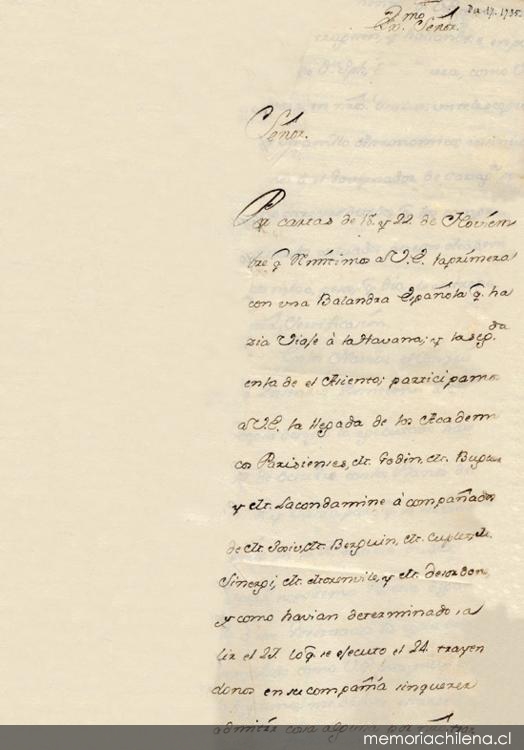 Da 17. 1735.
Exmo. Señor.
Señor.
Por cartas de 18. y 22. de Noviem
bre q. Remitimos a V.E. la primera
con una Balandra Española q. ha
zia Viaje à la Havana; y la segda
en la de el Asiento; participamos
a V.E. la llegada de los Academi
cos Parisienses, Mr. Godin, Mr. Buguer
y Mr. Lacondamine acompañados
de Mr. Mr. Mr.
Mr. y Mr.
y como havian determinado sa
lir el 25. lo q. se executo el 24. trayen
donos en su compañia sin querer
admitir cosa alguna por
memoriachilena.cl